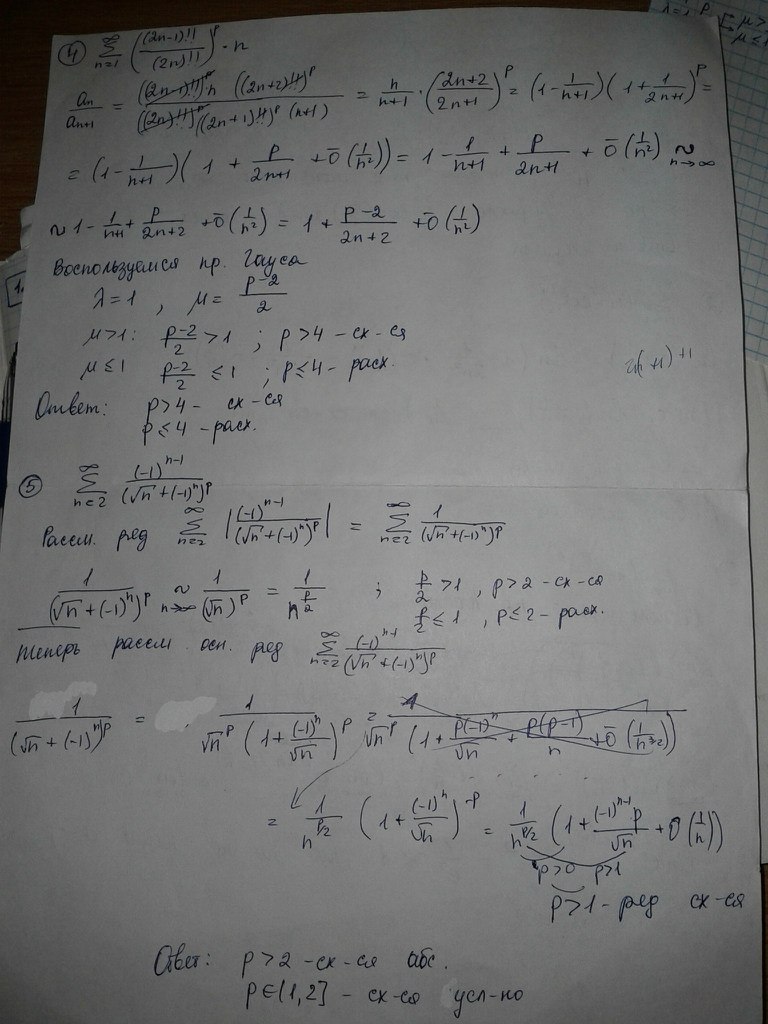 ④ ∑_{n=1}^{∞} ((2n-1)!!/(2n)!!)^p · n
a_n/a_{n+1} = ((2n-1)!!)^p n ((2n+2)!!)^p / ((2n)!!)^p ((2n+1)!!)^p (n+1) = n/(n+1) · ((2n+2)/(2n+1))^p = (1 - 1/(n+1))(1 + 1/(2n+1))^p =
= (1 - 1/(n+1))(1 + p/(2n+1) + ō(1/n²)) = 1 - 1/(n+1) + p/(2n+1) + ō(1/n²) ~_{n→∞}
~ 1 - 1/(n+1) + p/(2n+2) + ō(1/n²) = 1 + (p-2)/(2n+2) + ō(1/n²)
Воспользуемся пр. Гауса
λ=1 , μ= (p-2)/2
μ>1: (p-2)/2 >1 ; p>4 - сх-ся
μ≤1 (p-2)/2 ≤1 ; p≤4 - расх.
Ответ: p>4 - сх-ся
p≤4 - расх.
⑤ ∑_{n=2}^{∞} (-1)^{n-1}/(√n+(-1)^n)^p
Рассм. ряд ∑_{n=2}^{∞} |(-1)^{n-1}/(√n+(-1)^n)^p| = ∑_{n=2}^{∞} 1/(√n+(-1)^n)^p
1/(√n+(-1)^n)^p ~_{n→∞} 1/(√n)^p = 1/n^{p/2} ; p/2 >1 , p>2 - сх-ся
p/2 ≤1 , p≤2 - расх.
Теперь рассм. осн. ряд ∑_{n=2}^{∞} (-1)^{n-1}/(√n+(-1)^n)^p
1/(√n+(-1)^n)^p = 1/(√n^p (1+(-1)^n/√n)^p) = 1/(√n^p (1+ p(-1)^n/√n + p(p-1)/n + ō(1/n^{3/2})))
= 1/n^{p/2} (1+(-1)^n/√n)^{-p} = 1/n^{p/2} (1+ (-1)^{n-1}p/√n + O(1/n))
p>0 p>1
p>1 - ряд сх-ся
Ответ: p>2 - сх-ся абс.
p∈(1,2] - сх-ся усл-но